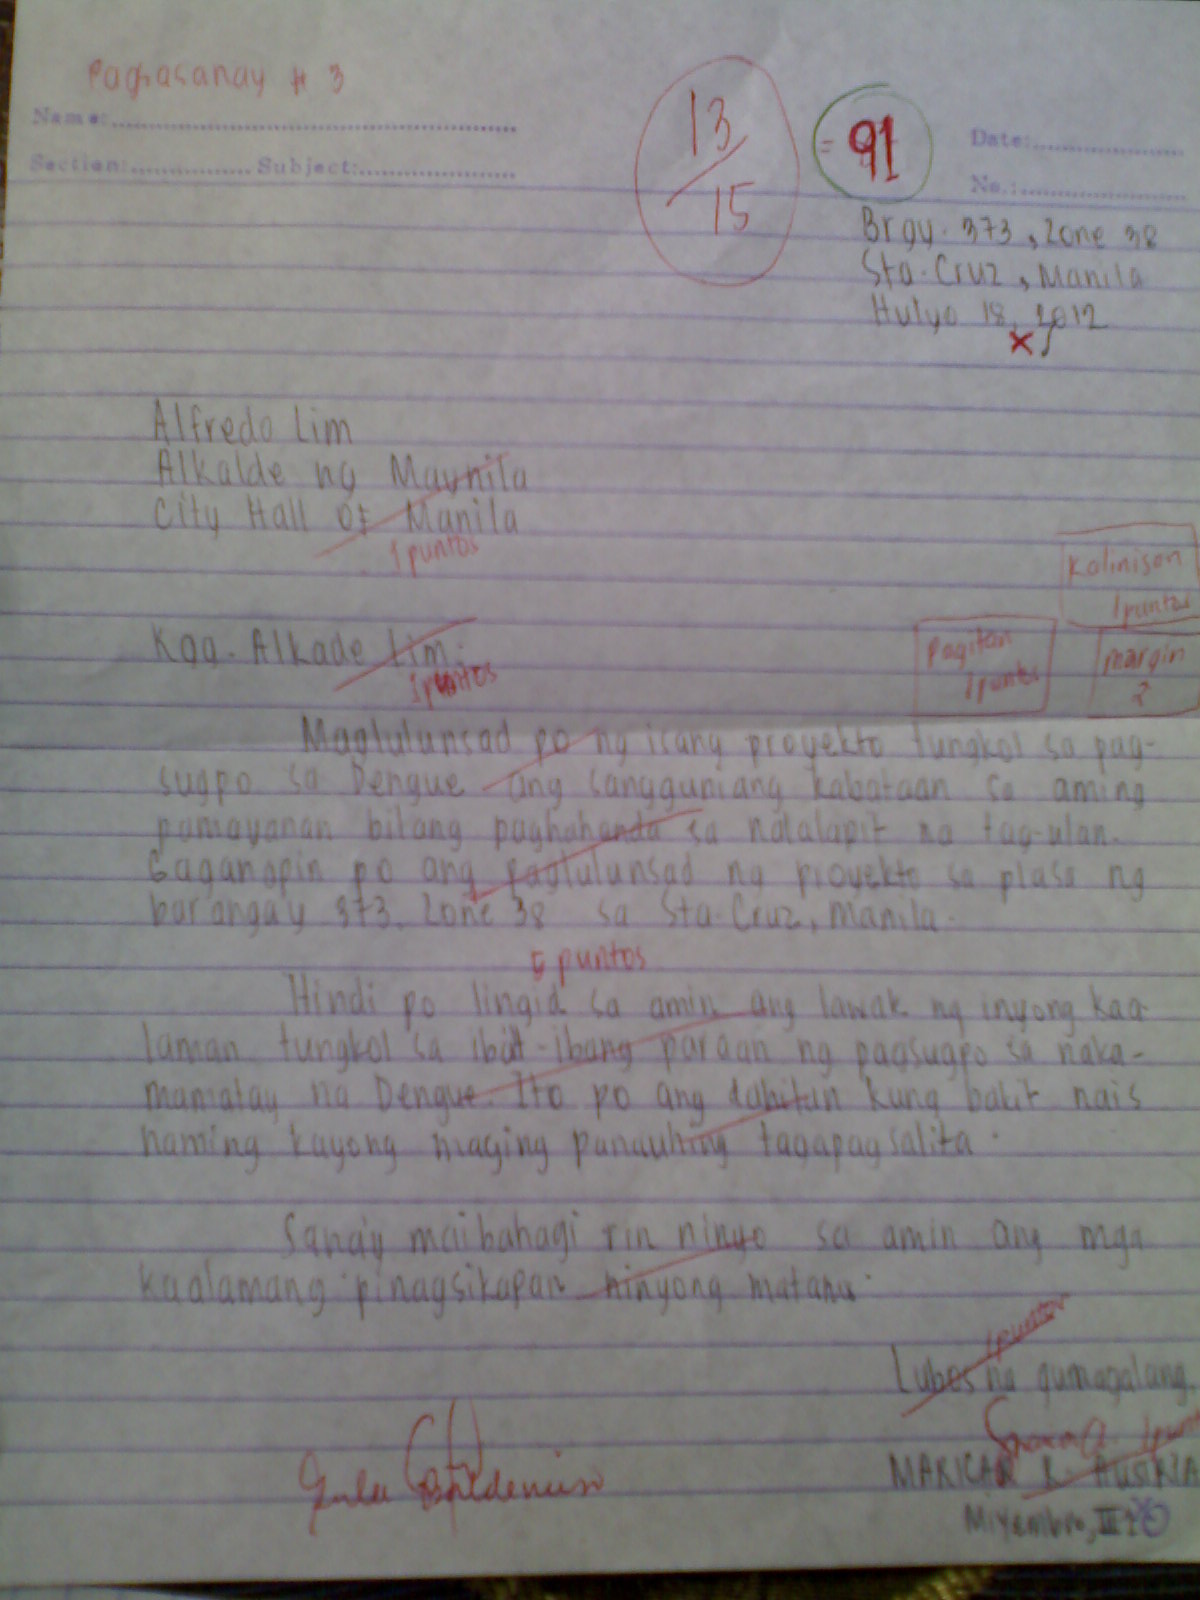 Pagsasanay # 3
Name:
Section: Subject:
13/15
= 91
Date:
No.:
Brgy. 373, Zone 38
Sta. Cruz, Manila
Hulyo 18, 2012
x
Alfredo Lim
Alkalde ng Maynila
City Hall of Manila
1 puntos
Kalinisan
1 puntos
Kgg. Alkade Lim:
1 puntos
Pagitan
1 puntos
margin
2
Maglulunsad po ng isang proyekto tungkol sa pag-
sugpo sa Dengue ang sangguniang kabataan sa aming
pamayanan bilang paghahanda sa nalalapit na tag-ulan.
Gaganapin po ang paglulunsad ng proyekto sa plasa ng
barangay 373, Zone 38 sa Sta. Cruz, Manila.
5 puntos
Hindi po lingid sa amin ang lawak ng inyong kaa-
laman tungkol sa ibat-ibang paraan ng pagsugpo sa naka-
mamatay na Dengue. Ito po ang dahilan kung bakit nais
naming kayong maging panauhing tagapagsalita.
Sanay maibahagi rin ninyo sa amin ang mga
kaalamang pinagsikapan ninyong matamo.
1 puntos
Lubos na gumagalang,
MARICAR R. AUSTRIA
Miyembro, III-